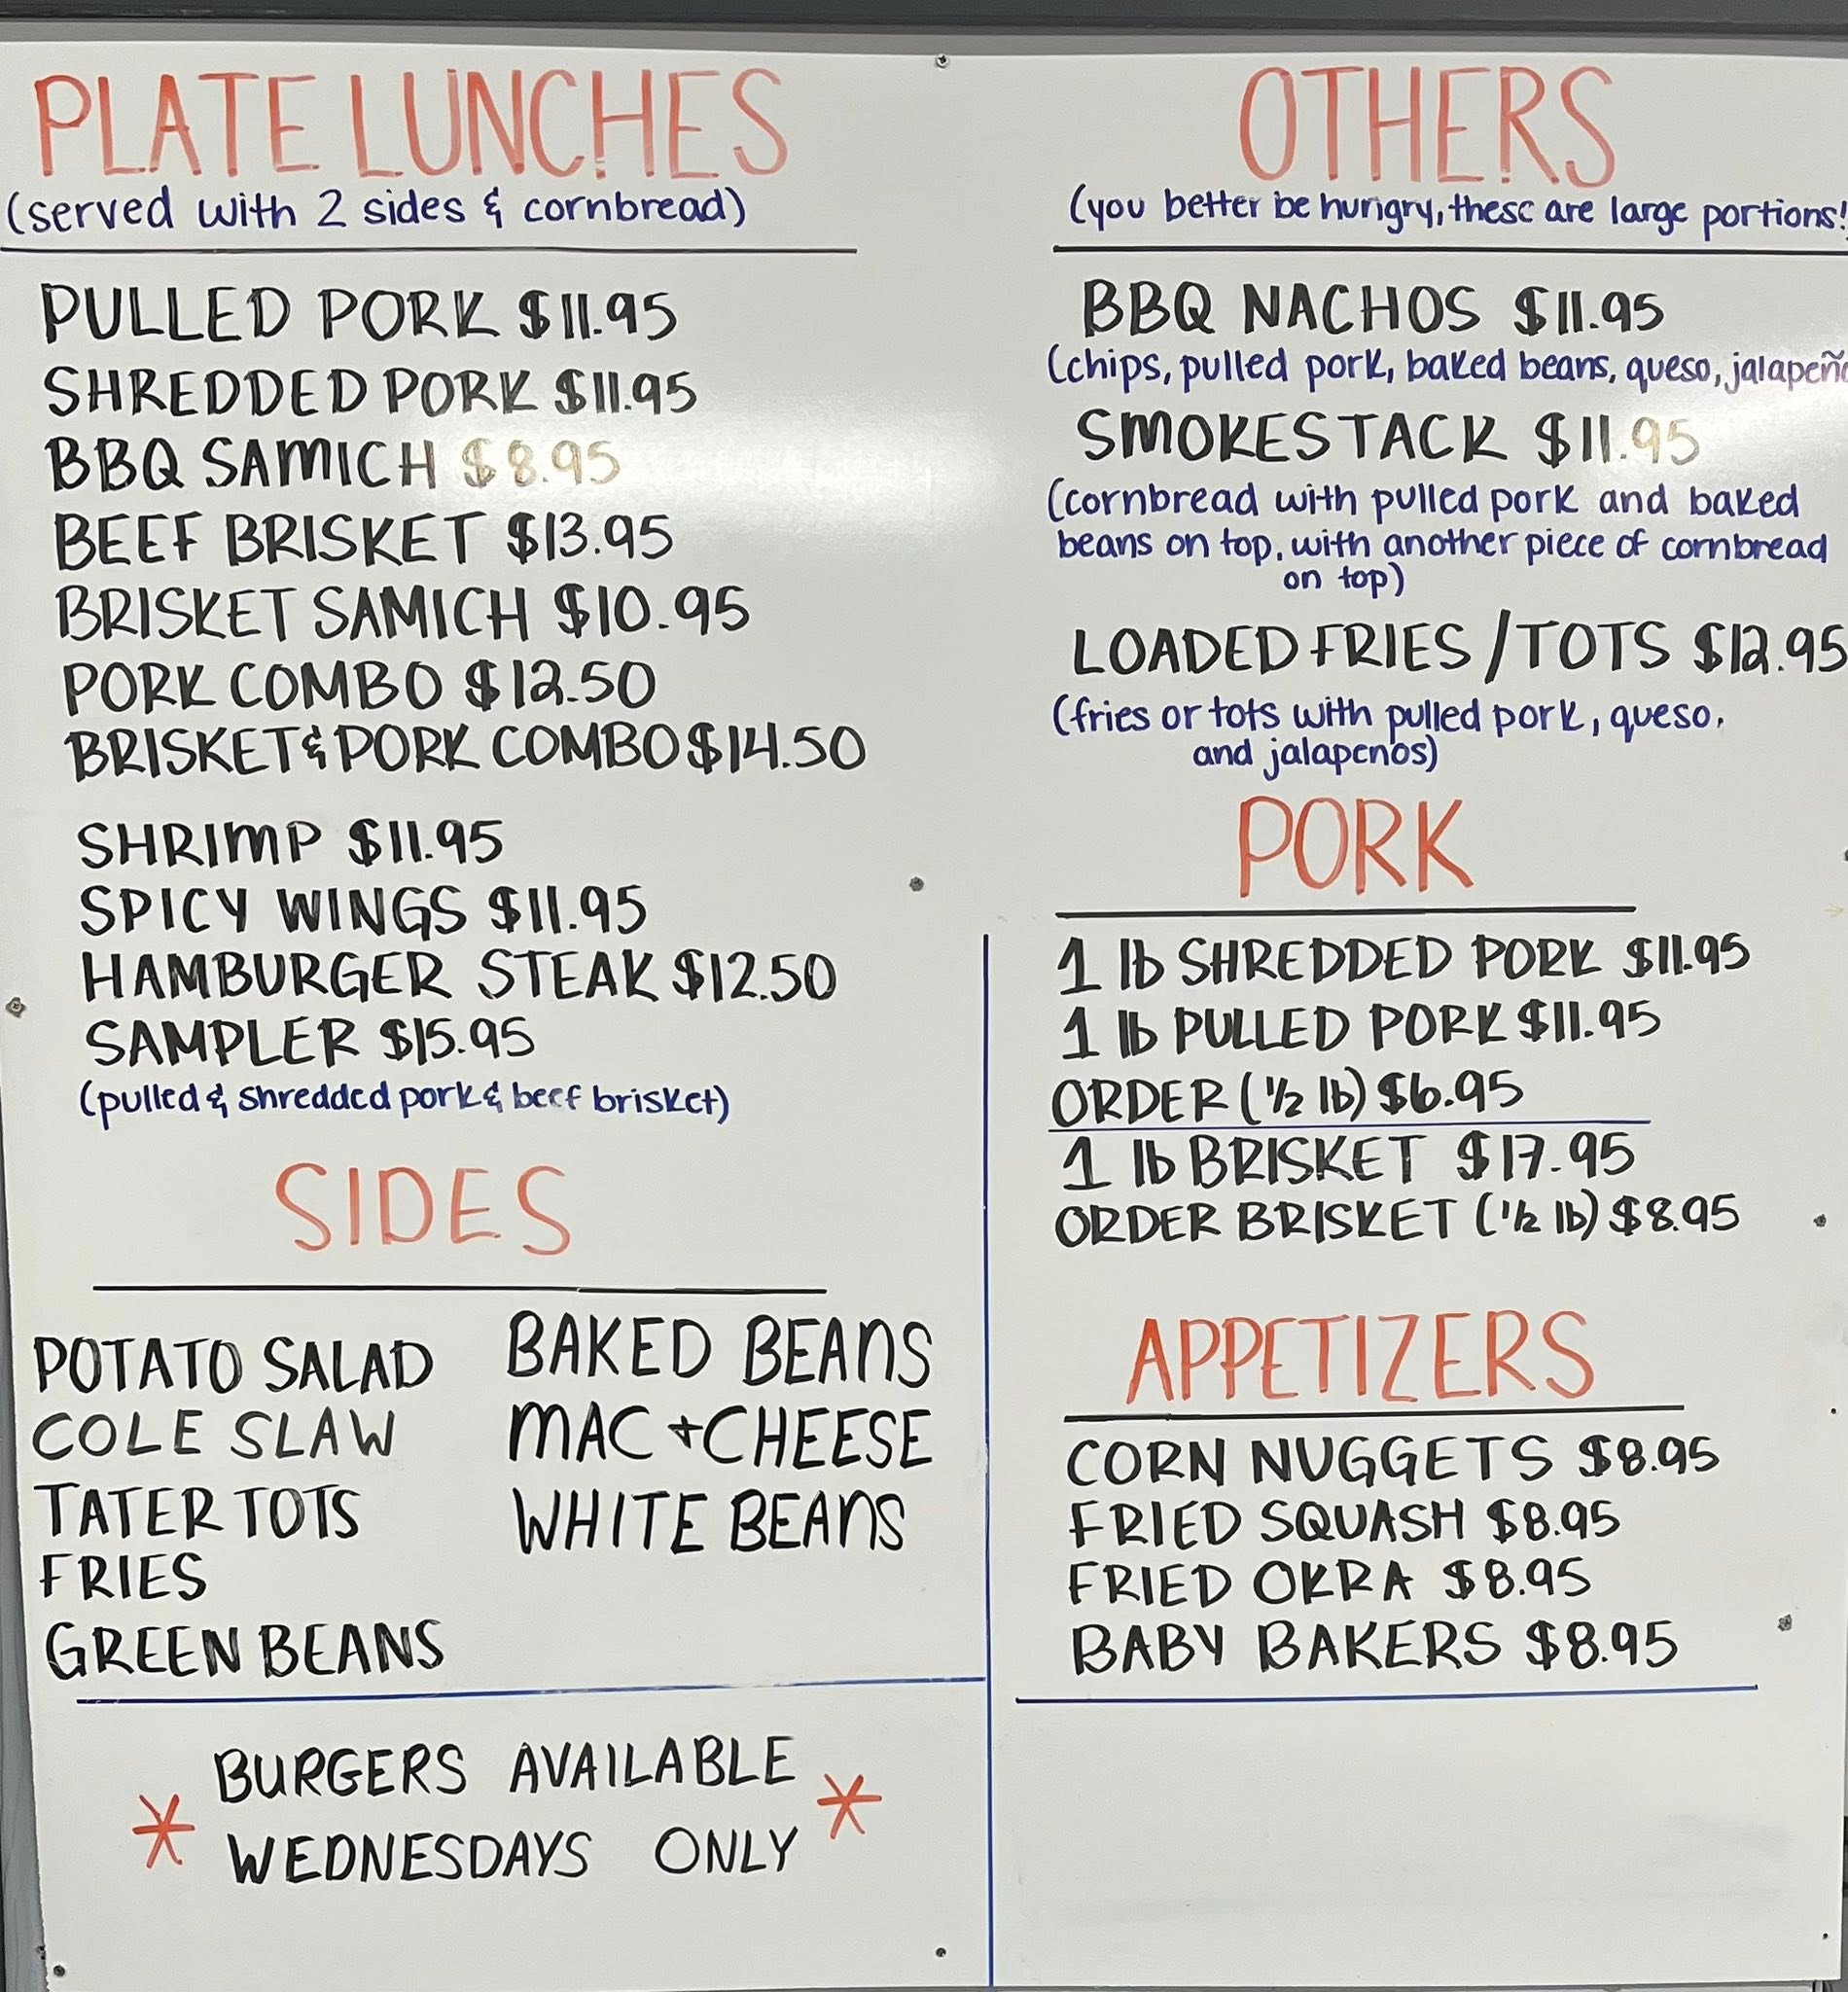 PLATE LUNCHES
(served with 2 sides & cornbread)
PULLED PORK $11.95
SHREDDED PORK $11.95
BBQ SAMICH $8.95
BEEF BRISKET $13.95
BRISKET SAMICH $10.95
PORK COMBO $12.50
BRISKET & PORK COMBO $14.50
SHRIMP $11.95
SPICY WINGS $11.95
HAMBURGER STEAK $12.50
SAMPLER $15.95
(pulled & shredded pork & beef brisket)
SIDES
POTATO SALAD
COLE SLAW
TATER TOTS
FRIES
GREEN BEANS
BAKED BEANS
MAC + CHEESE
WHITE BEANS
BURGERS AVAILABLE
* WEDNESDAYS ONLY *
OTHERS
(you better be hungry, these are large portions!
BBQ NACHOS $11.95
(chips, pulled pork, baked beans, queso, jalapeño
SMOKESTACK $11.95
(cornbread with pulled pork and baked
beans on top, with another piece of cornbread
on top)
LOADED FRIES / TOTS $12.95
(fries or tots with pulled pork, queso,
and jalapenos)
PORK
1 lb SHREDDED PORK $11.95
1 lb PULLED PORK $11.95
ORDER (1/2 lb) $6.95
1 lb BRISKET $17.95
ORDER BRISKET (1/2 lb) $8.95
APPETIZERS
CORN NUGGETS $8.95
FRIED SQUASH $8.95
FRIED OKRA $8.95
BABY BAKERS $8.95